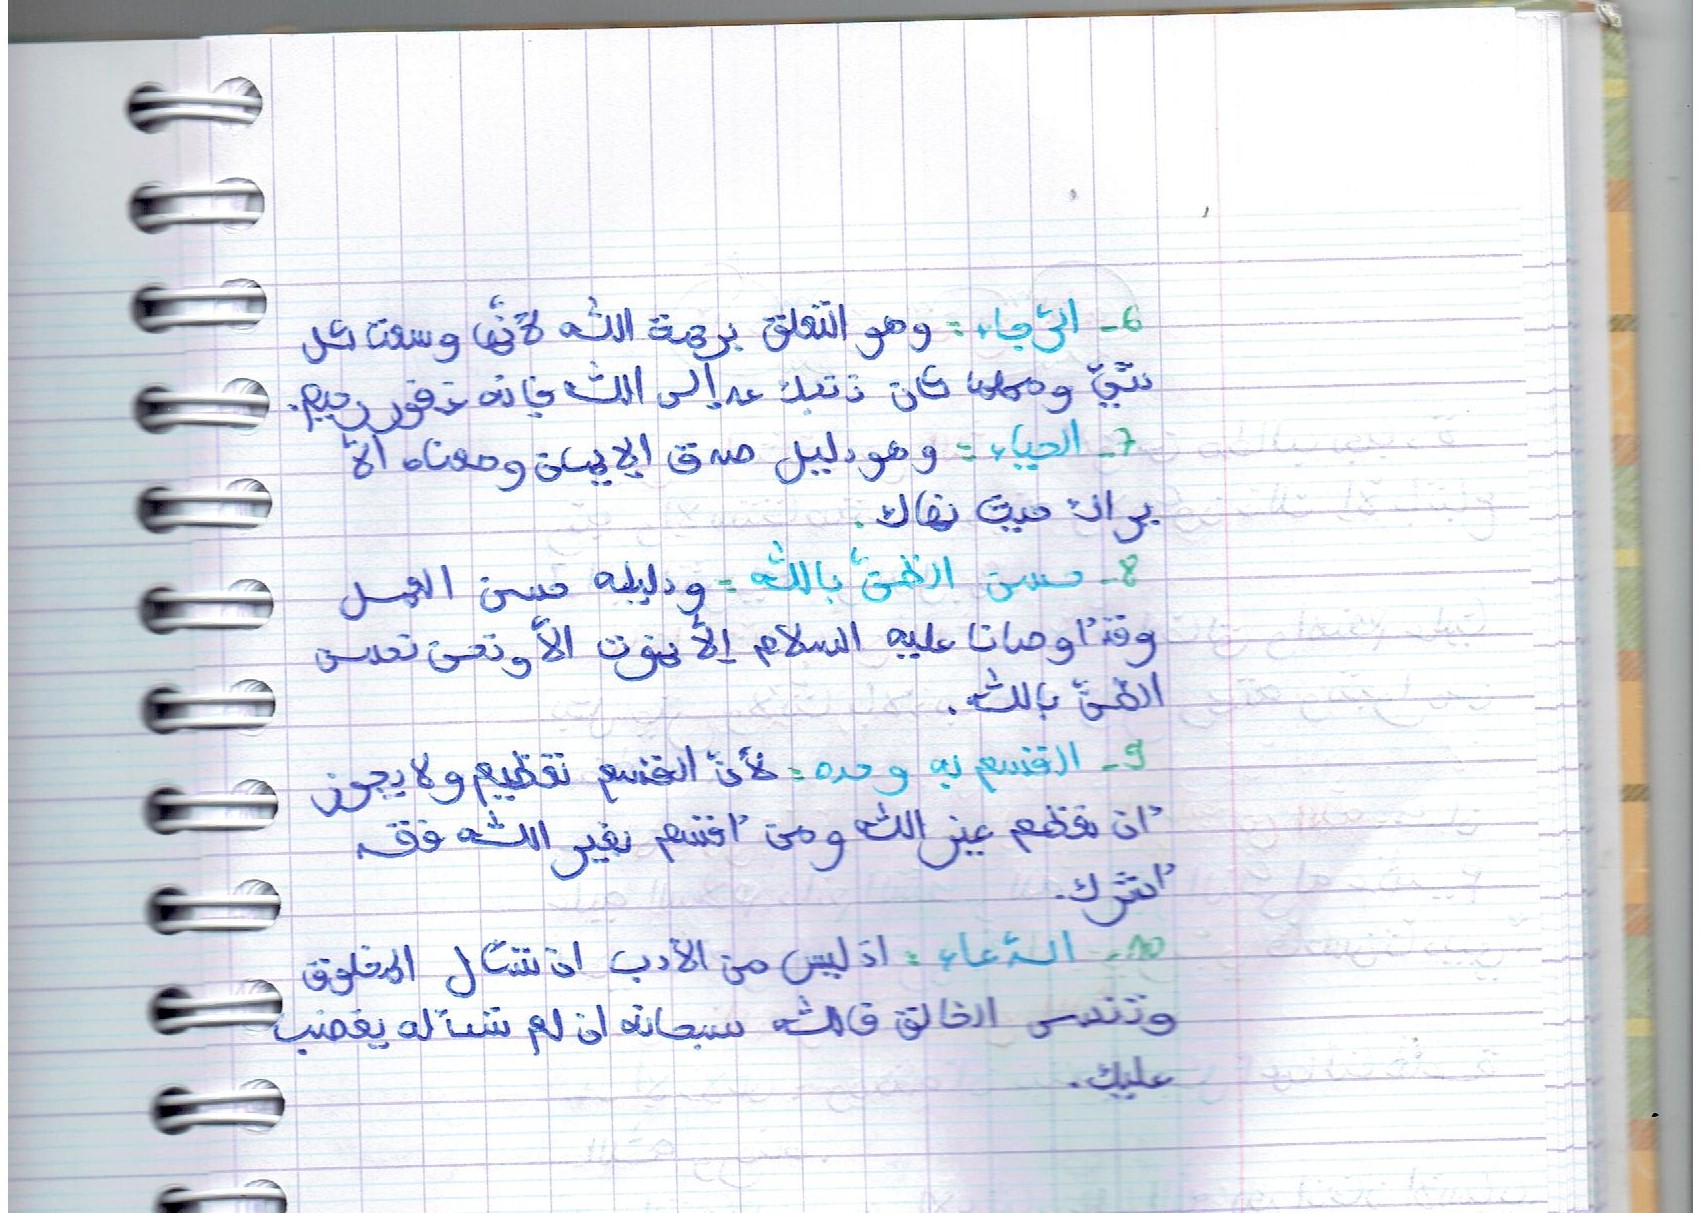 6- الرّجاء = وهو التعلق برحمة الله لأنّها وسعت كل
شيّ ومهما كان ذنبك عد إلى الله فإنه غفور رحيم.
7- الحياء = وهو دليل صدق الإيمان ومعناه ألاّ
يراك حيث نهاك.
8- حسن الظنّ بالله = ودليله حسن العمل
وقد أوصانا عليه السلام إلاّ نموت الاّ ونحن نحسن
الظنّ بالله.
9- القسم به وحده = لأنّ القسم تعظيم ولا يجوز
أن نعظم غير الله ومن أقسم بغير الله فقد
أشرك.
10- الدّعاء = اذ ليس من الأدب ان تسأل المخلوق
وتنسى الخالق فالله سبحانه ان لم تسأله يغضب
عليك.